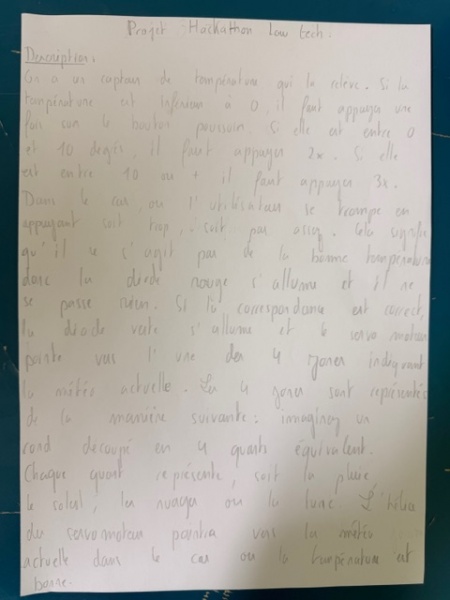 Projet : Hackathon low tech :
Description :
On a un capteur de température qui la relève. Si la
température est inférieur à 0, il faut appuyer une
fois sur le bouton poussoir. Si elle est entre 0
et 10 degés, il faut appuyer 2x. Si elle
est entre 10 ou + il faut appuyer 3x.
Dans le cas, ou l'utilisateur se trompe en
appuyant soit trop, soit pas assez. Cela signifie
qu'il ne s'agit pas de la bonne température
donc la diode rouge s'allume et il ne
se passe rien. Si la correspondance est correct,
la diode verte s'allume et le servo moteur
pointe vers l'une des 4 zones indiquant
la météo actuelle. Les 4 zones sont représentés
de la manière suivante : imaginez un
rond découpé en 4 quarts équivalent.
Chaque quart représente, soit la pluie
le soleil, les nuages ou la lune. L'hélice
du servomoteur pointra vers la météo
actuelle dans le cas ou la température est
bonne.